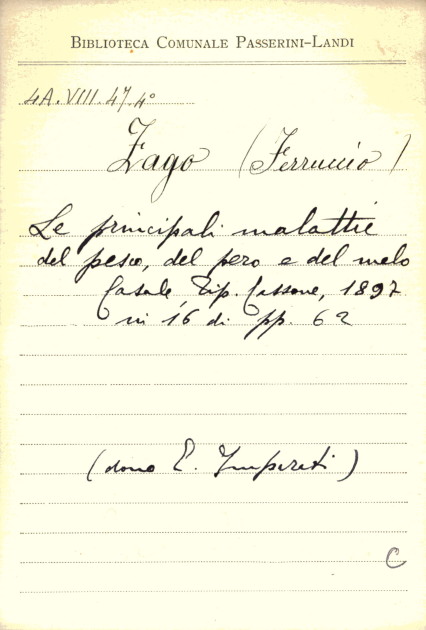 BIBLIOTECA COMUNALE PASSERINI-LANDI
4A.VIII.47.4°
Zago (Ferruccio)
Le principali malattie
del pesco, del pero e del melo
Casale, Tip. Cassone, 1897
in 16 di pp. 62
(dono E. Imperati)
C